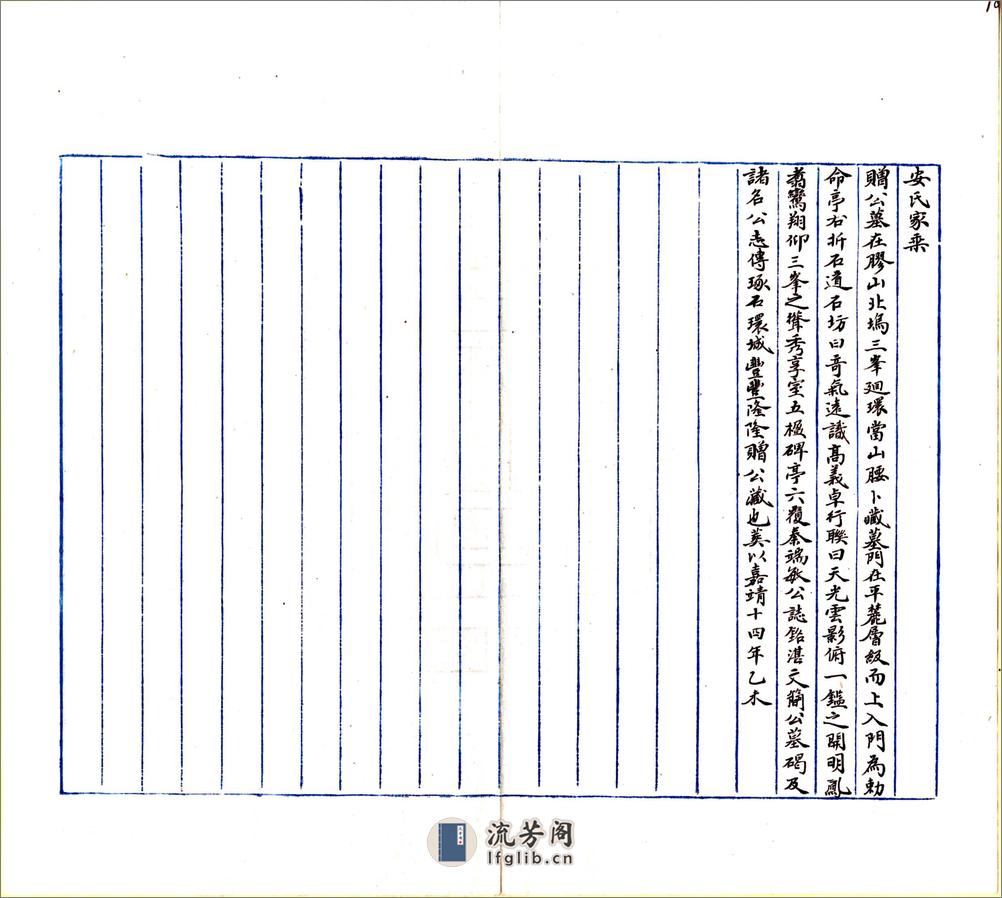 安氏家乘
贈公墓在膠山北塢三峯廻環當山腰卜藏墓門在平麓層級而上入門為勅
命亭右折石道石坊曰奇氣遠識高義卓行聯曰天光雲影俯一鑑之開明鳳
翥鸞翔仰三峯之聳秀享室五楹碑亭六覆秦端敏公誌銘湛文簡公墓碣及
諸名公志傳琢石環城豐豐隆隆贈公藏也葬以嘉靖十四年乙未
流芳阁
lfglib.cn